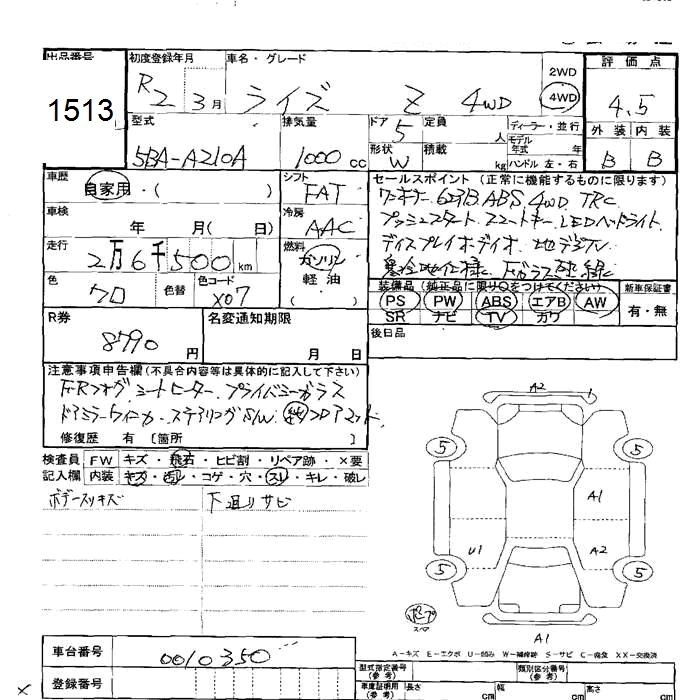 出品番号
1513
初度登録年月
R2 3月
車名・グレード
ライズ Z 4WD
2WD
4WD
評価点
4.5
外装 内装
B B
型式
5BA-A210A
排気量
1000 cc
ドア 5
定員 人
形状 W
積載 kg
ディーラー・並行
モデル年式 年
ハンドル 左・右
車歴
自家用・( )
シフト
FAT
車検
年 月( 日)
冷房
AAC
走行
2万6千500km
燃料
ガソリン
軽油
( )
色
クロ
色替
色コード
X07
セールスポイント (正常に機能するものに限ります)
ワンオーナー. ABS. 4WD. TRC
プッシュスタート スマートキー. LEDヘッドライト
ディスプレイオーディオ. 地デジTV
寒冷地仕様. Fガラス
装備品(純正品に限り○をつけてください)
PS PW ABS エアB AW
SR ナビ TV カワ
新車保証書
有・無
R券
8790円
名変通知期限
月 日
後日品
注意事項申告欄(不具合内容等は具体的に記入して下さい)
F・Rフォグ シートヒーター. プライバシーガラス
ドアミラーウィンカー. ステアリングS/W. 純フロアマット.
修復歴 有 [箇所 ]
検査員 FW キズ・飛石・ヒビ割・リペア跡・×要
記入欄 内装 キズ・汚レ・コゲ・穴・スレ・キレ・破レ
ボデースリキズ
下廻りサビ
A2
1
5
5
A1
U1
A2
5
5
A1
A-キズ E-エクボ U-凹み W-補修跡 S-サビ C-腐食 XX-交換済
車台番号
0010350
登録番号
型式指定番号(参考)
類別区分番号(参考)
車庫証明用(参考)
長さ cm
幅 cm
高さ cm
×